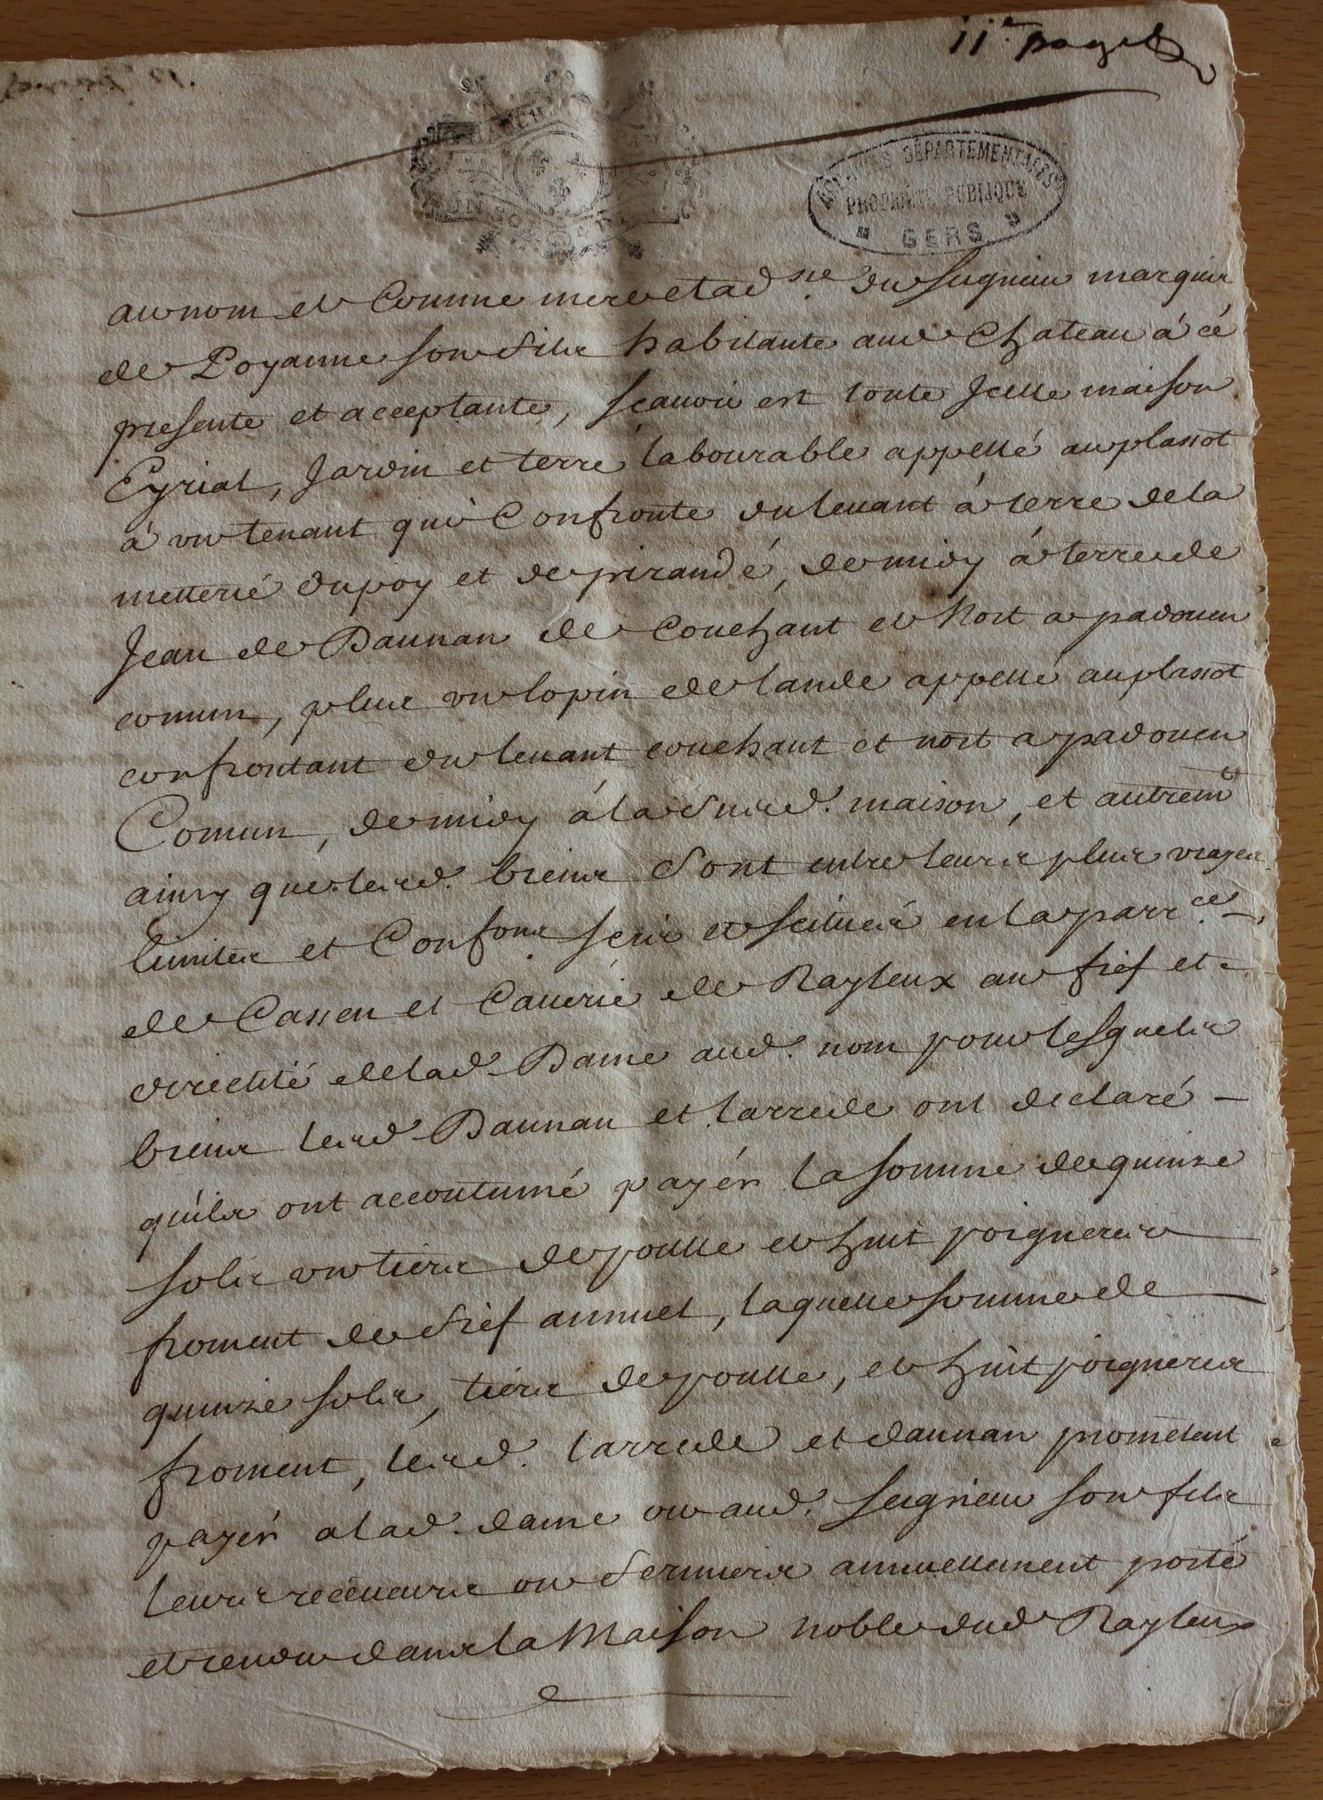 11e page
ARCHIVES DÉPARTEMENTALES
PROPRIÉTÉ PUBLIQUE
GERS
au nom et comme mere et ad.ne du seigneur marquis
de Poyanne son fils habitante aud chateau à cé
presente et acceptante, sçauoir est toute Jcelle maison
Eyrial, Jardin et terre labourable appellé au plassot
à un tenant qui confronte du leuant à terre de la
metterié du poy et de pirandé, de midy à terre de
Jean de Daunan de couchant et Nort a padouen
comun, plus un lopin de lande appellé au plassot
confrontant du leuant couchant et nort a padouen
Comun, de midy à la susd. maison, et autremt
ainsy que lesd. biens sont entre leurs plus vrayes
limites et Confons. sis et scitués en la parr.ce
de Cassen et Cauerie de Rayleux au fief et
directité de lad Dame aud. nom pour lesquels
biens lesd Daunan et larrede ont declaré
quils ont accoutumé payér la somme de quinze
sols un tiers de poulle et huit poigneres
froment de fief annuel, laquelle somme de
quinze sols, tiers de poulle, et huit poigneres
froment, lesd. larrede et daunan prometent
payér a lad. dame ou aud. seigneur son fils
leurs receueurs ou fermiers annuellement porté
et rendu dans la Maison noble dud Rayleux